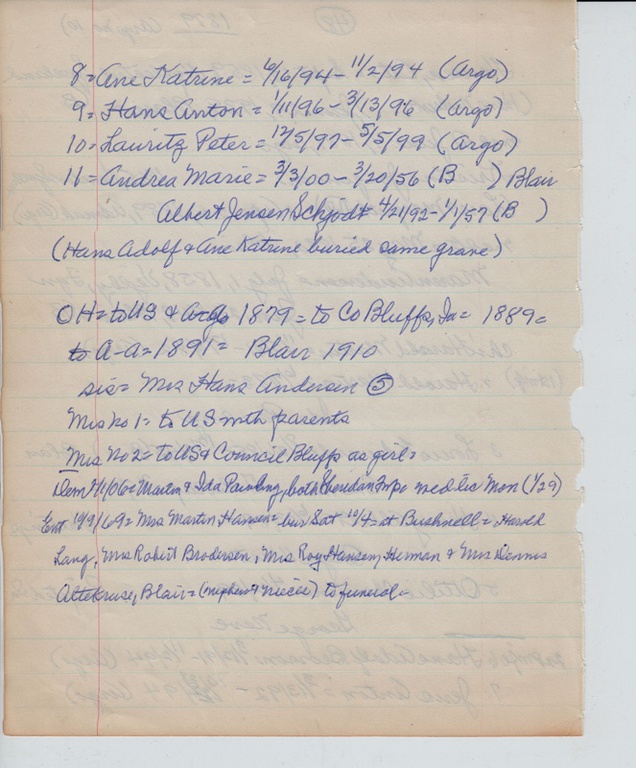 8= Ane Katrine = 6/16/94 - 11/2/94 (Argo)
9= Hans Anton = 1/11/96 - 3/13/96 (Argo)
10= Lauritz Peter = 12/5/97 - 5/5/99 (Argo)
11= Andrea Marie = 3/3/00 - 3/20/56 (B ) Blair
Albert Jensen Schjodt 4/21/92 - 1/1/57 (B )
(Hans Adolf & Ane Katrine buried same grave)
OH= to US & Argo 1879 = to Co Bluffs, Ia = 1889 =
to A-a = 1891 = Blair 1910
sis= Mrs Hans Andersen ⑤
Mrs no 1= to US with parents
Mrs No 2= to US & Council Bluffs as girl=
Dem 2/1/06= Martin & Ida both Sheridan Twp med lic Mon (1/29)
Ent 10/9/69= Mrs Martin Hansen= bur Sat 10/4= at Bushnell= Harold
Lang, Mrs Robert Brodersen, Mrs Roy Hansen, Herman & Mrs Dennis
Altekruse, Blair= (nephew & nieces) to funeral=